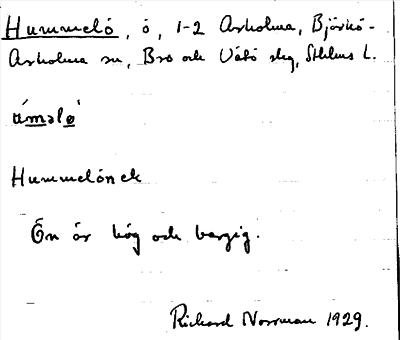 Hummelö, ö, 1-2 Arholma, Björkö-
Arholma sn, Bro och Vätö skg, Sthlms l.
Hummelön ek
Ön är hög och bergig.
Richard Norrman 1929.